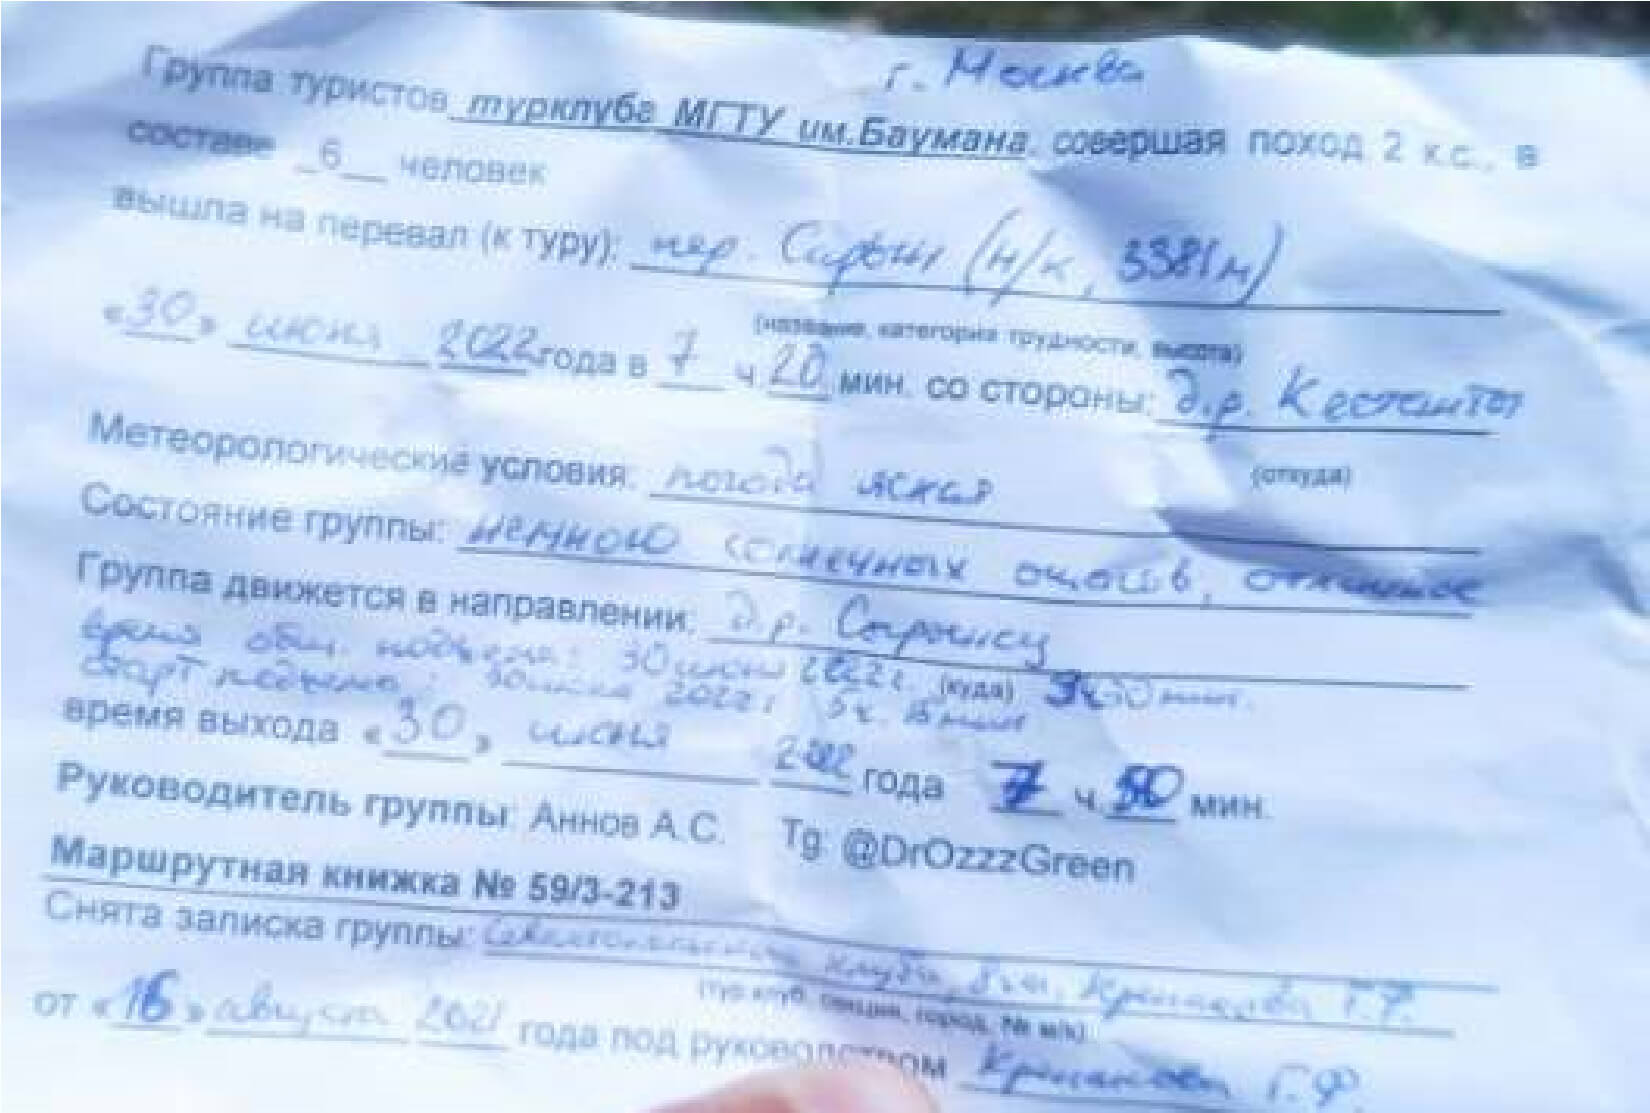 г. Москва
Группа туристов турклуба МГТУ им.Баумана, совершая поход 2 к.с., в
составе _6__ человек
вышла на перевал (к туру): пер. Сарын (н/к, 3381м)
(название, категория трудности, высота)
«30» июня 2022 года в 7 ч 20 мин. со стороны: д.р.
(откуда)
Метеорологические условия: погода ясная
Состояние группы: немного солнечных отличное
Группа движется в направлении: д.р.
(куда)
время общ. подъема: 30 июня 2022г. мин.
старт подъема: 30 июня 2022г 5ч. 15 мин
время выхода «30» июня 2022 года 7 ч 50 мин.
Руководитель группы: Аннов А.С. Tg: @DrOzzzGreen
Маршрутная книжка № 59/3-213
Снята записка группы: клуба, Г.Ф.
(тур.клуб, секция, город, № м/к)
от «16» августа 2021 года под руководством Г.Ф.